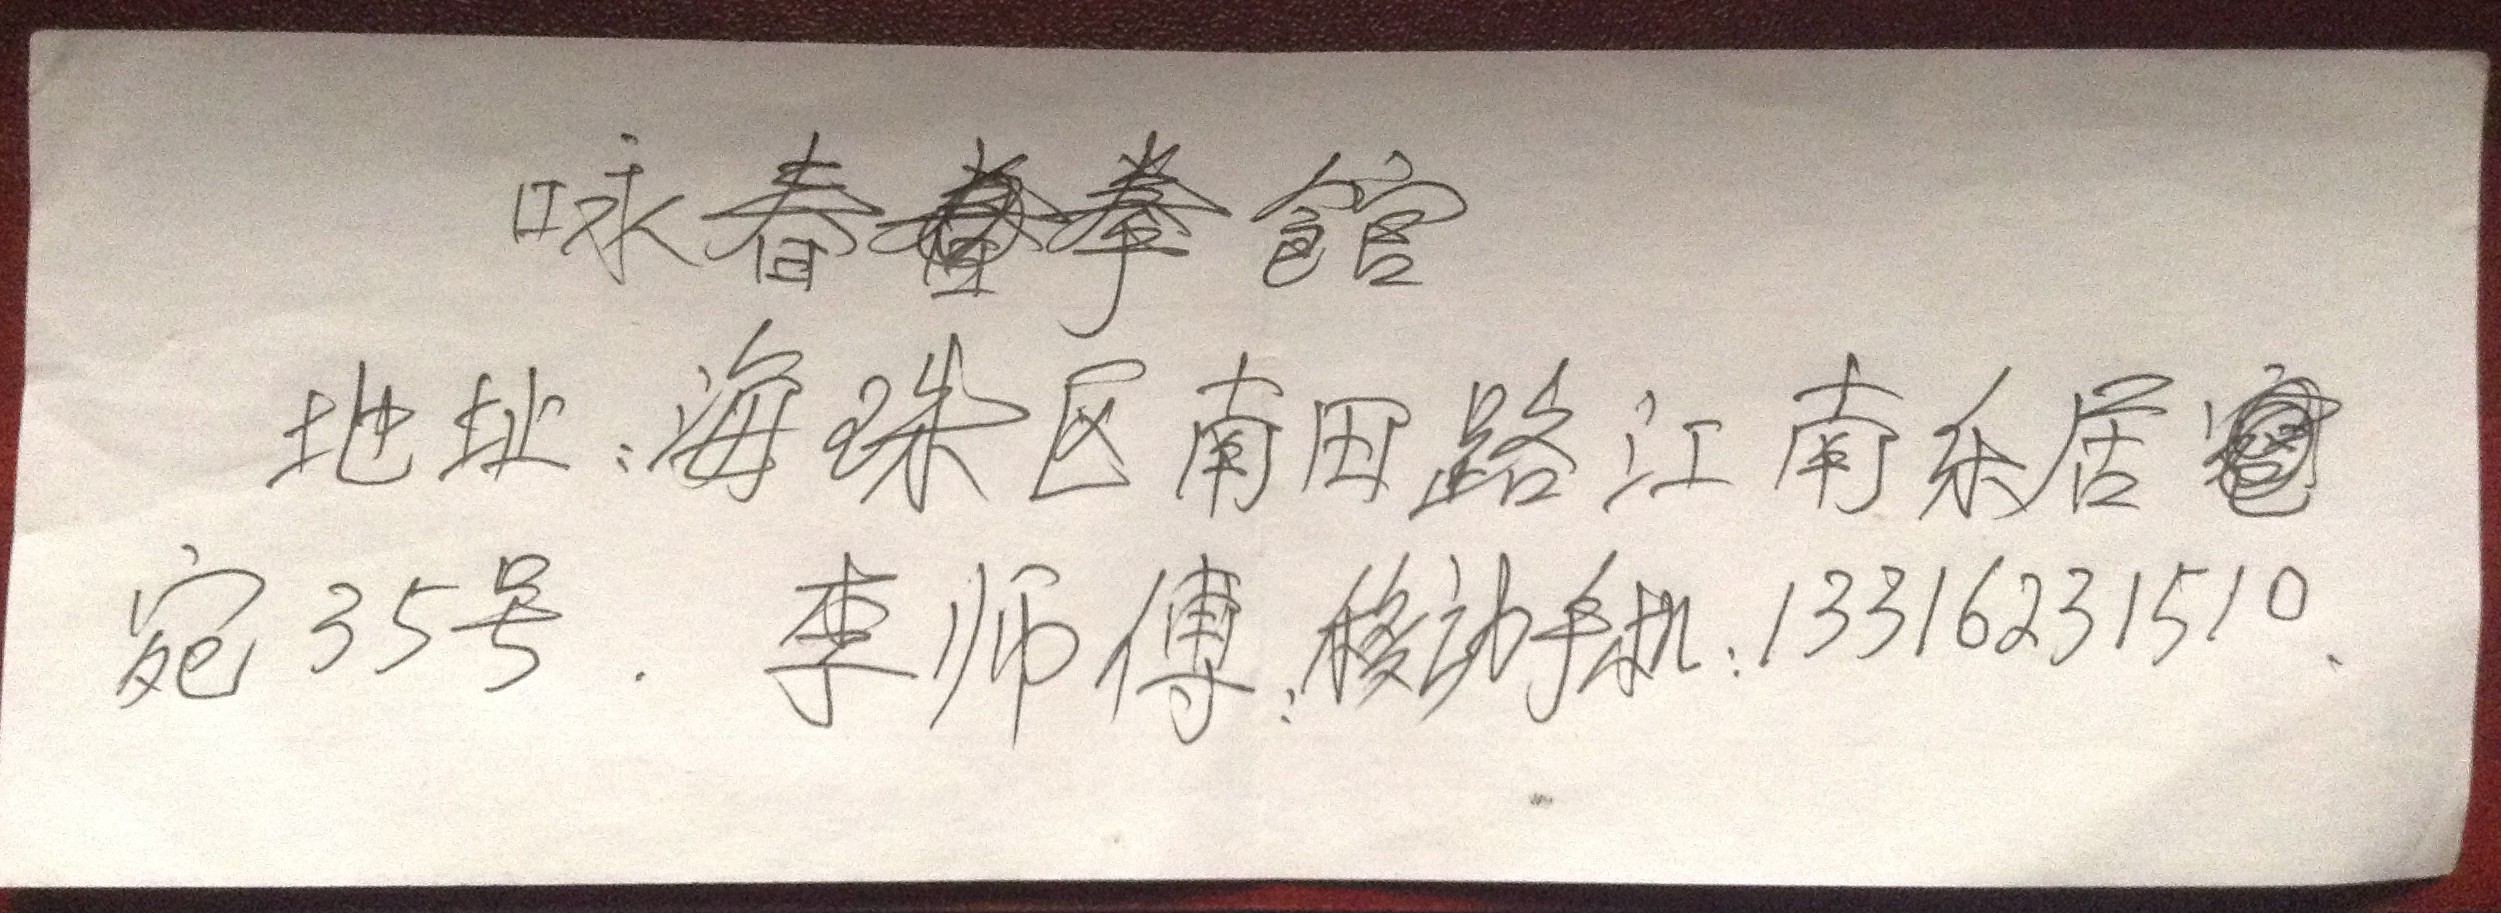 咏春拳館
地址:海珠区南田路江南乐居
宛35号. 李师傅:移动手机:13316231510、